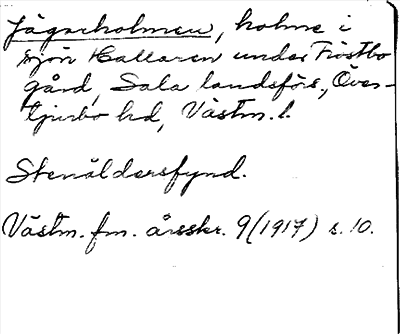 Jägarholmen, holme i
sjön Hallaren under Fröstbo
gård, Sala landsförs., Över-
tjurbo hd, Västm. l.
Stenåldersfynd.
Västm. fm. årsskr. 9 (1917) s. 10.